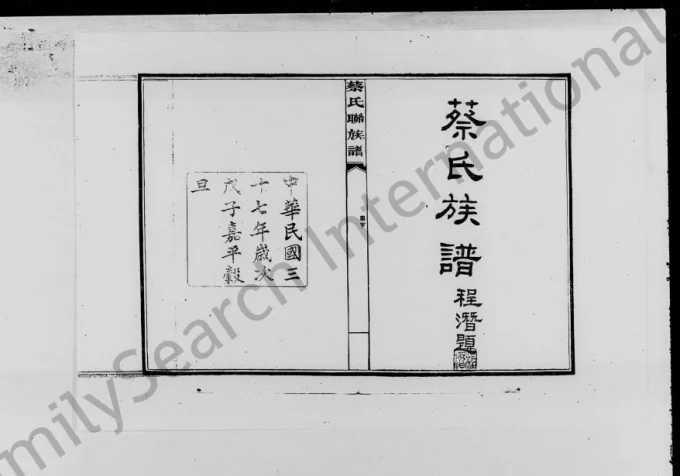 蔡氏族譜
程潛題
蔡氏聯族譜
中華民國三
十七年歲次
戊子嘉平穀
旦
FamilySearch International